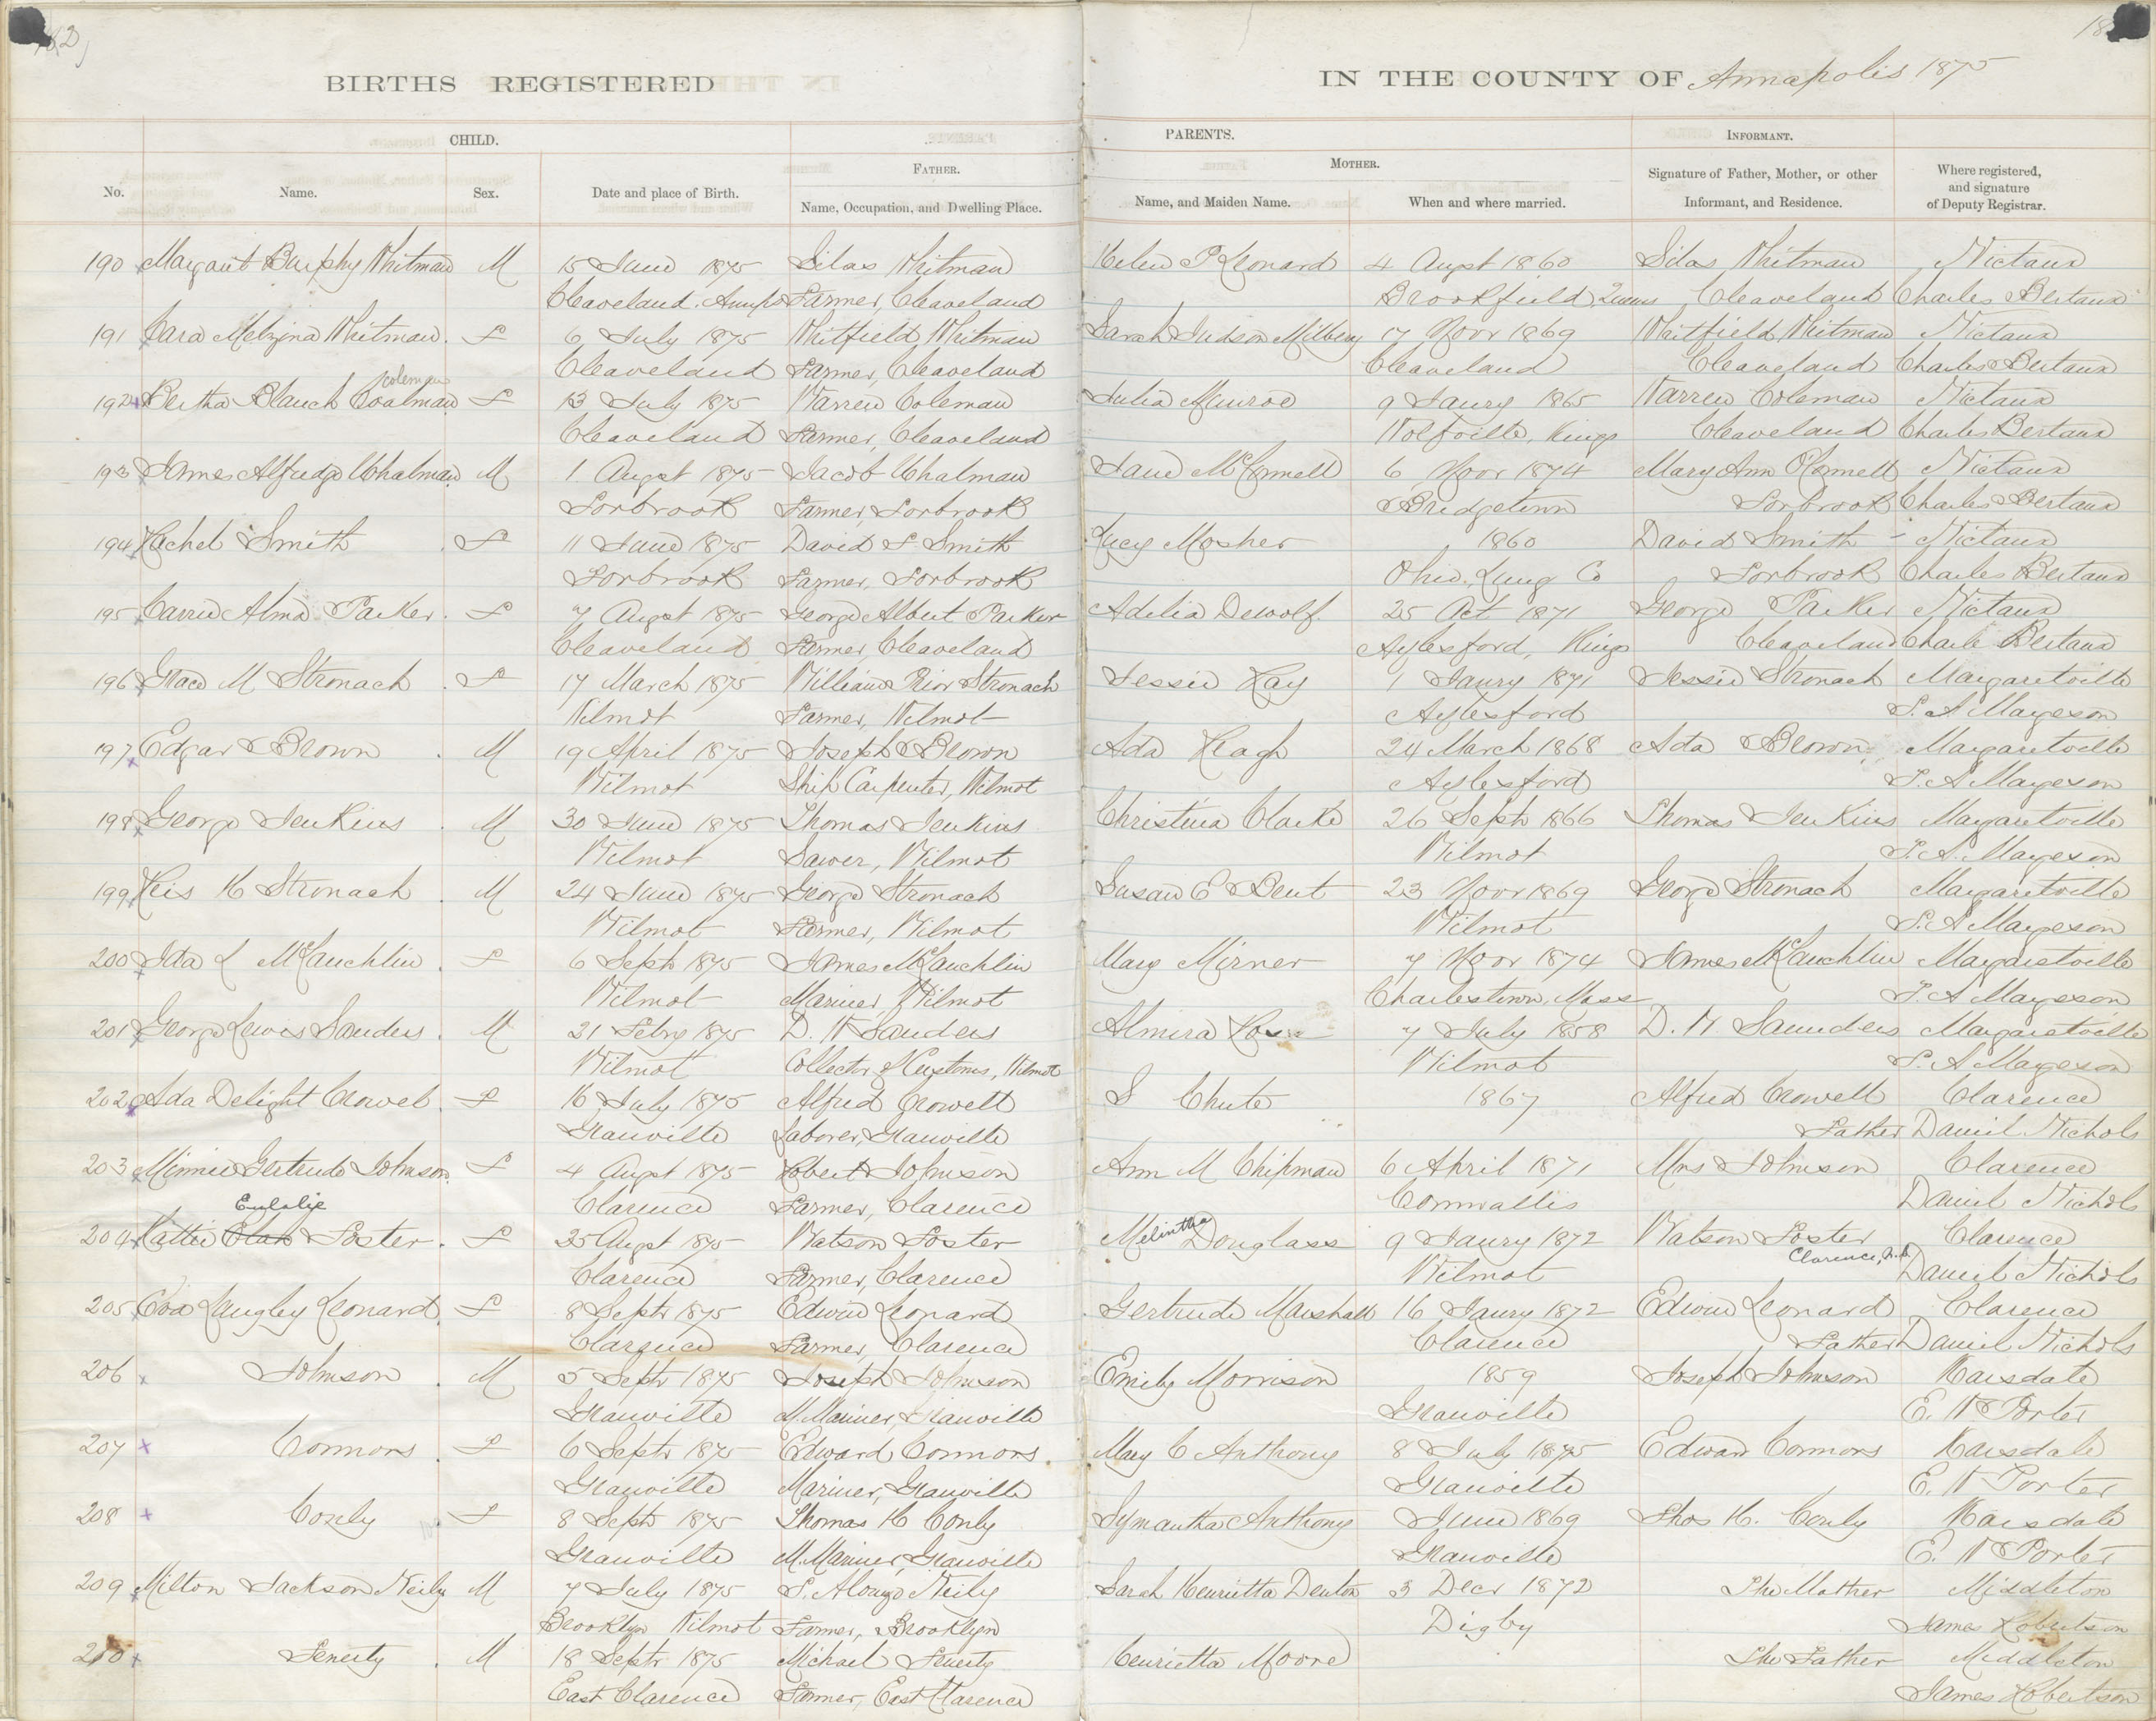 182
BIRTHS REGISTERED
IN THE COUNTY OF Annapolis 1875
CHILD.
PARENTS.
INFORMANT.
FATHER.
MOTHER.
No. Name. Sex. Date and place of Birth. Name, Occupation, and Dwelling Place. Name, and Maiden Name. When and where married. Signature of Father, Mother, or other Informant, and Residence. Where registered, and signature of Deputy Registrar.
190 Margaut Burphy Whitman M 15 June 1875 Silas Whitman Helen P Leonard 4 Augst 1860 Silas Whitman Nictaux
Cleaveland. Annps Farmer, Cleaveland Brookfield, Queens Cleaveland Charles Bertaux
191 Cara Melzina Whitman. F 6 July 1875 Whitfield Whitman Sarah Judson Milbery 17 Novr 1869 Whitfield Whitman Nictaux
Cleaveland Farmer, Cleaveland Cleaveland Cleaveland Charles Bertaux
Coleman
192 Bertha Blanch Coalman F 13 July 1875 Warren Coleman Julia Munroe 9 Jaury 1865 Warren Coleman Nictaux
Cleaveland Farmer, Cleaveland Wolfville, Kings Cleaveland Charles Bertaux
193 James Alfredge Whalman M 1 Augst 1875 Jacob Whalman Jane McConnell 6 Novr 1874 Mary Ann O'Connell Nictaux
Torbrook Farmer, Torbrook Bridgetown Torbrook Charles Bertaux
194 Rachel Smith F 11 June 1875 David F. Smith Lucy Mosher 1860 David Smith Nictaux
Torbrook Farmer, Torbrook Ohio, Lung Co Torbrook Charles Bertaux
195 Carrie Alma Parker. F 7 Augst 1875 George Albert Parker Adelia Dewolf. 25 Oct 1871 George Parker Nictaux
Cleaveland Farmer Cleaveland Aylesford, Kings Cleaveland Charles Bertaux
196 Grace M Stronach F 17 March 1875 William Prior Stronach Jessie Kay 1 Jaury 1871 Jessie Stronach Margaretville
Wilmot Farmer, Wilmot Aylesford S. A Margeson
197 Edgar Brown M 19 April 1875 Joseph Brown Ada Keagh 24 March 1868 Ada Brown Margaretville
Wilmot Ship Carpenter, Wilmot Aylesford S. A Margeson
198 George Jenkins M 30 June 1875 Thomas Jenkins Christina Clarke 26 Septr 1866 Thomas Jenkins Margaretville
Wilmot Sawer, Wilmot Wilmot S. A. Margeson
199 Reis H Stronach M 24 June 1875 George Stronach Susan E Bent 23 Novr 1869 George Stronach Margaretville
Wilmot Farmer, Wilmot Wilmot S. A Margeson
200 Ida L McLauchlin F 6 Septr 1875 James McLauchlin Mary Mirner 7 Novr 1874 James McLauchlin Margaretville
Wilmot Mariner, Wilmot Charlestown, Mass S. A Margeson
201 George Lewis Sanders. M 21 Febry 1875 D. W Sanders Almira 7 July 1858 D. W Saunders Margaretville
Wilmot Collector of Customs, Wilmot Wilmot S. A Margeson
202 Ada Delight Crowel. F 16 July 1875 Alfred Crowell S Chute 1867 Alfred Crowell Clarence
Granville Laborer, Granville Father Daniel Nichols
203 Minnie Gertrude Johnson F 4 Augst 1875 Robert Johnson Ann M Chipman 6 April 1871 Mrs Johnson Clarence
Clarence Farmer, Clarence Cornwallis Daniel Nichols
Eulalie
204 Hattie Foster. F 25 Augst 1875 Watson Foster Melintha Douglass 9 Jaury 1872 Watson Foster Clarence
Clarence Farmer, Clarence Wilmot Clarence, N.S. Daniel Nichols
205 Eva Langley Leonard F 8 Septr 1875 Edwin Leonard Gertrude Marshall 16 Jaury 1872 Edwin Leonard Clarence
Clarence Farmer, Clarence Clarence Father Daniel Nichols
206 Johnson M 5 Septr 1875 Joseph Johnson Emily Morrison 1859 Joseph Johnson Karsdale
Granville M. Mariner, Granville Granville E. W Porter
207 Connors F 6 Septr 1875 Edward Connors. Mary C Anthony 8 July 1875 Edward Connors Karsdale
Granville Mariner, Granville Granville E. W Porter
208 Conly F 8 Septr 1875 Thomas H Conly Symantha Anthony June 1869 Thos H. Conly Karsdale
Granville M. Mariner, Granville Granville E. W Porter
209 Milton Jackson Neily M 7 July 1875 S. Alonzo Neily Sarah Henrietta Denton 3 Decr 1872 The Mother Middleton
Brooklyn Wilmot Farmer, Brooklyn Digby James Robertson
210 Fenerty M 18 Septr 1875 Michael Fenerty Henrietta Moore The Father Middleton
East Clarence Farmer, East Clarence James Robertson